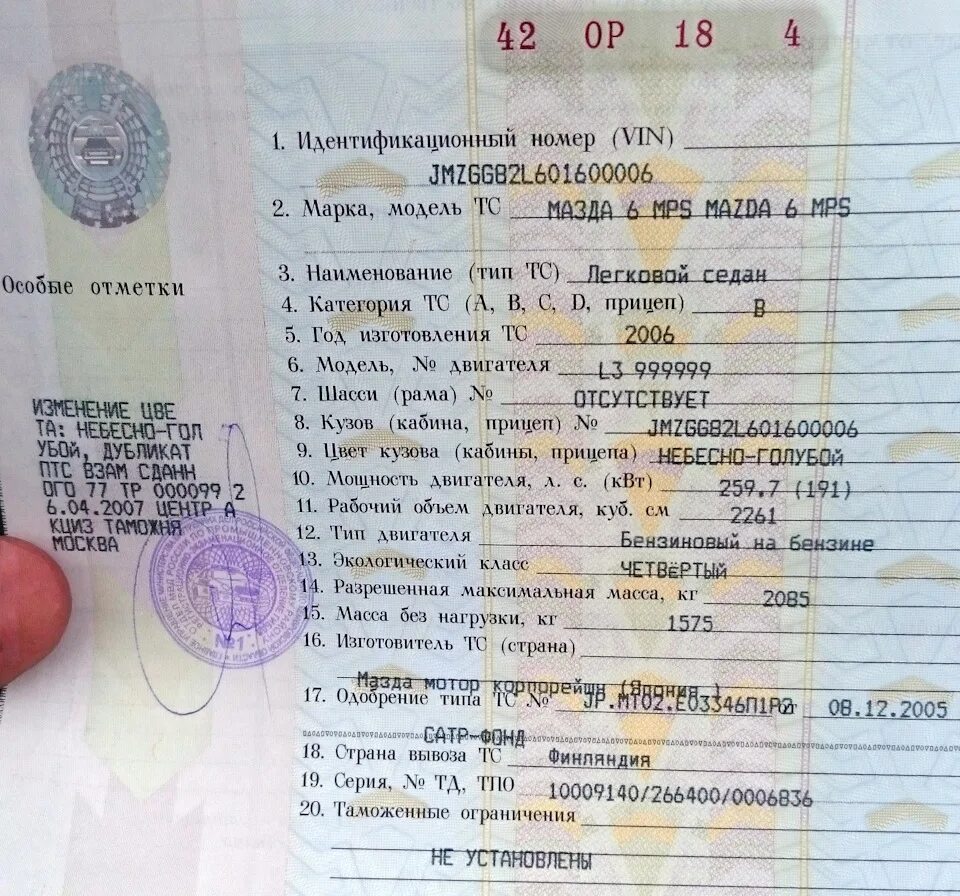 42 ОР 18 4
1. Идентификационный номер (VIN)
JMZGG82L601600006
2. Марка, модель ТС МАЗДА 6 MPS MAZDA 6 MPS
3. Наименование (тип ТС) Легковой седан
4. Категория ТС (А, В, С, D, прицеп) В
5. Год изготовления ТС 2006
6. Модель, № двигателя L3 999999
7. Шасси (рама) № ОТСУТСТВУЕТ
8. Кузов (кабина, прицеп) № JMZGG82L601600006
9. Цвет кузова (кабины, прицепа) НЕБЕСНО-ГОЛУБОЙ
10. Мощность двигателя, л. с. (кВт) 259.7 (191)
11. Рабочий объем двигателя, куб. см 2261
12. Тип двигателя Бензиновый на бензине
13. Экологический класс ЧЕТВЁРТЫЙ
14. Разрешенная максимальная масса, кг 2085
15. Масса без нагрузки, кг 1575
16. Изготовитель ТС (страна)
Мазда мотор корпорейшн (Япония )
17. Одобрение типа ТС № JP.MT02.E03346П1Р2 от 08.12.2005
САТР-ФОНД
18. Страна вывоза ТС Финляндия
19. Серия, № ТД, ТПО 10009140/266400/0006836
20. Таможенные ограничения
НЕ УСТАНОВЛЕНЫ
Особые отметки
ИЗМЕНЕНИЕ ЦВЕ
ТА: НЕБЕСНО-ГОЛ
УБОЙ, ДУБЛИКАТ
ПТС ВЗАМ СДАНН
ОГО 77 ТР 000099 2
6.04.2007 ЦЕНТР А
КЦИЗ ТАМОЖНЯ
МОСКВА
№1